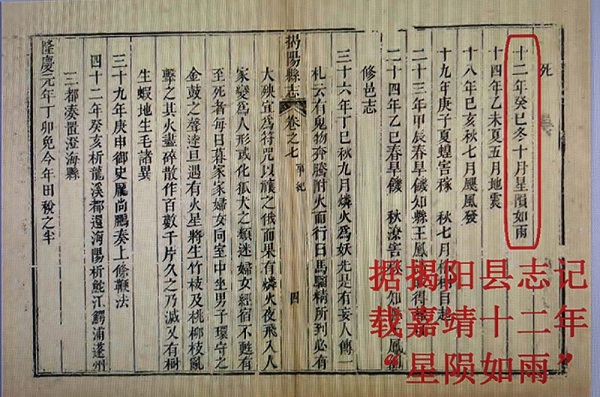 死
十二年癸巳冬十月星隕如雨
十四年乙未夏五月地震
十八年己亥秋七月颶風發
十九年庚子夏蝗害稼 秋七月
二十三年甲辰春旱饑知縣王鳳
二十四年乙巳春旱饑 秋潦害 知縣 鳳
修邑志
三十六年丁巳秋九月燐火為妖先是有妄人傳一
札云有鬼物奔騰附火而行日馬騮精所到必有
揭陽縣志 卷之七 事紀 四
大殃宜為符咒以禳之俄而果有燐火夜飛入人
家變為人形或化狐犬之類迷婦女經宿不甦有
至死者每日暮家家婦女向室中坐男子環守之
金鼓之聲達旦遇有火星將生竹枝及桃柳枝亂
擊之其火星碎散作百數千片久之乃滅又有樹
生蝦地生毛諸異
三十九年庚申御史龐尚鵬奏上條鞭法
四十二年癸亥析龍溪都還海陽析鮀江鱷浦蓬州
三都湊置澄海縣
隆慶元年丁卯免今年田稅之半
据揭阳县志记
载嘉靖十二年
“星陨如雨”